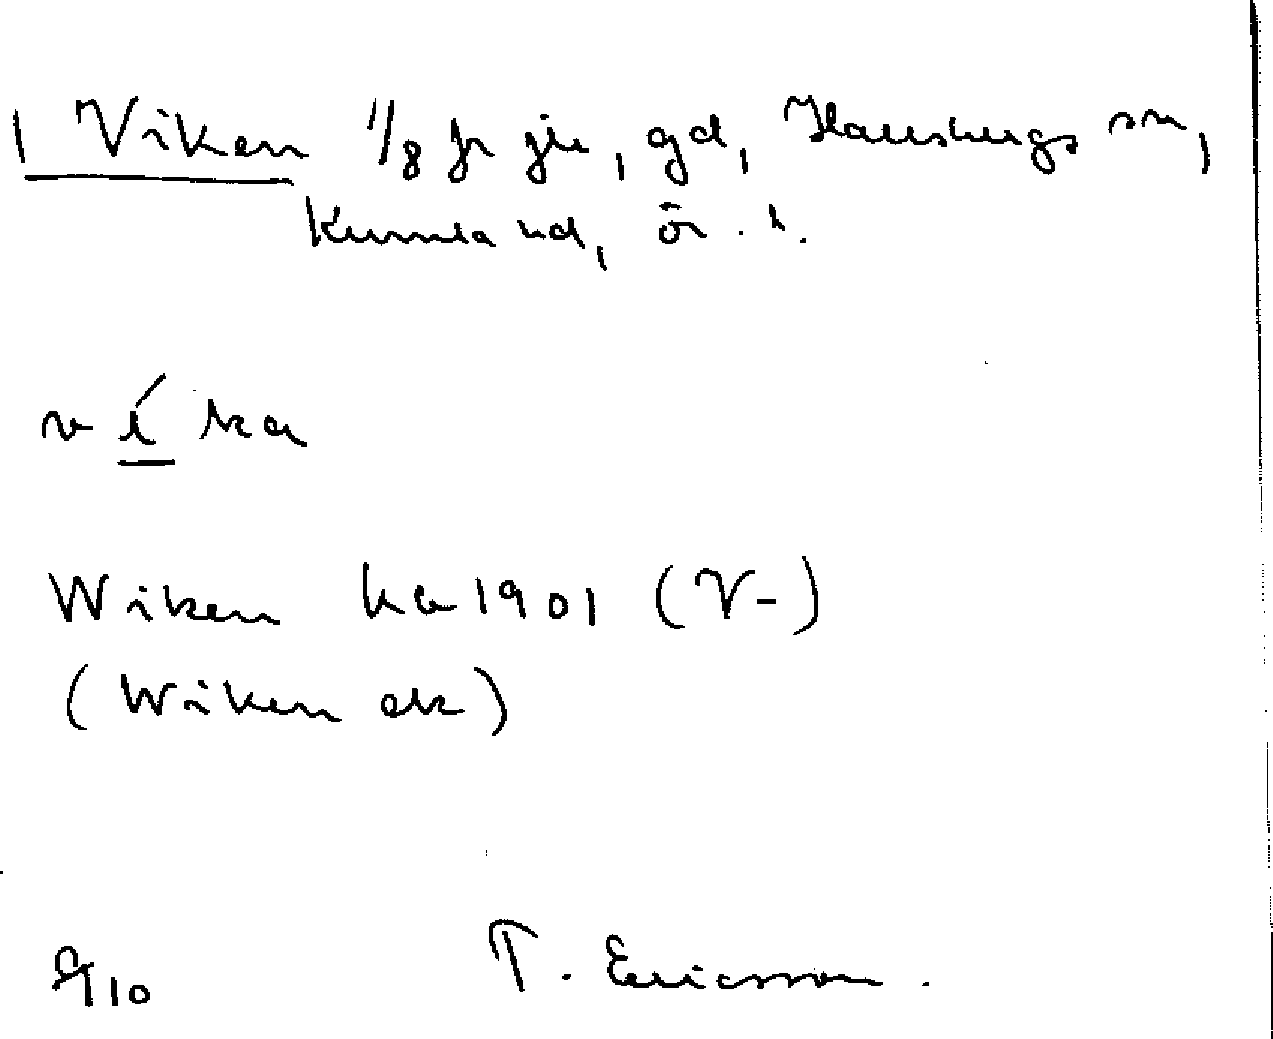 1 Viken 1/8 fr jle, gd, Hallsbergs sn,
Kumla hd, Ör. l.
v í ka
Wiken ka 1901 (V-)
(Wiken ek)
9/10 T. Ericsson.